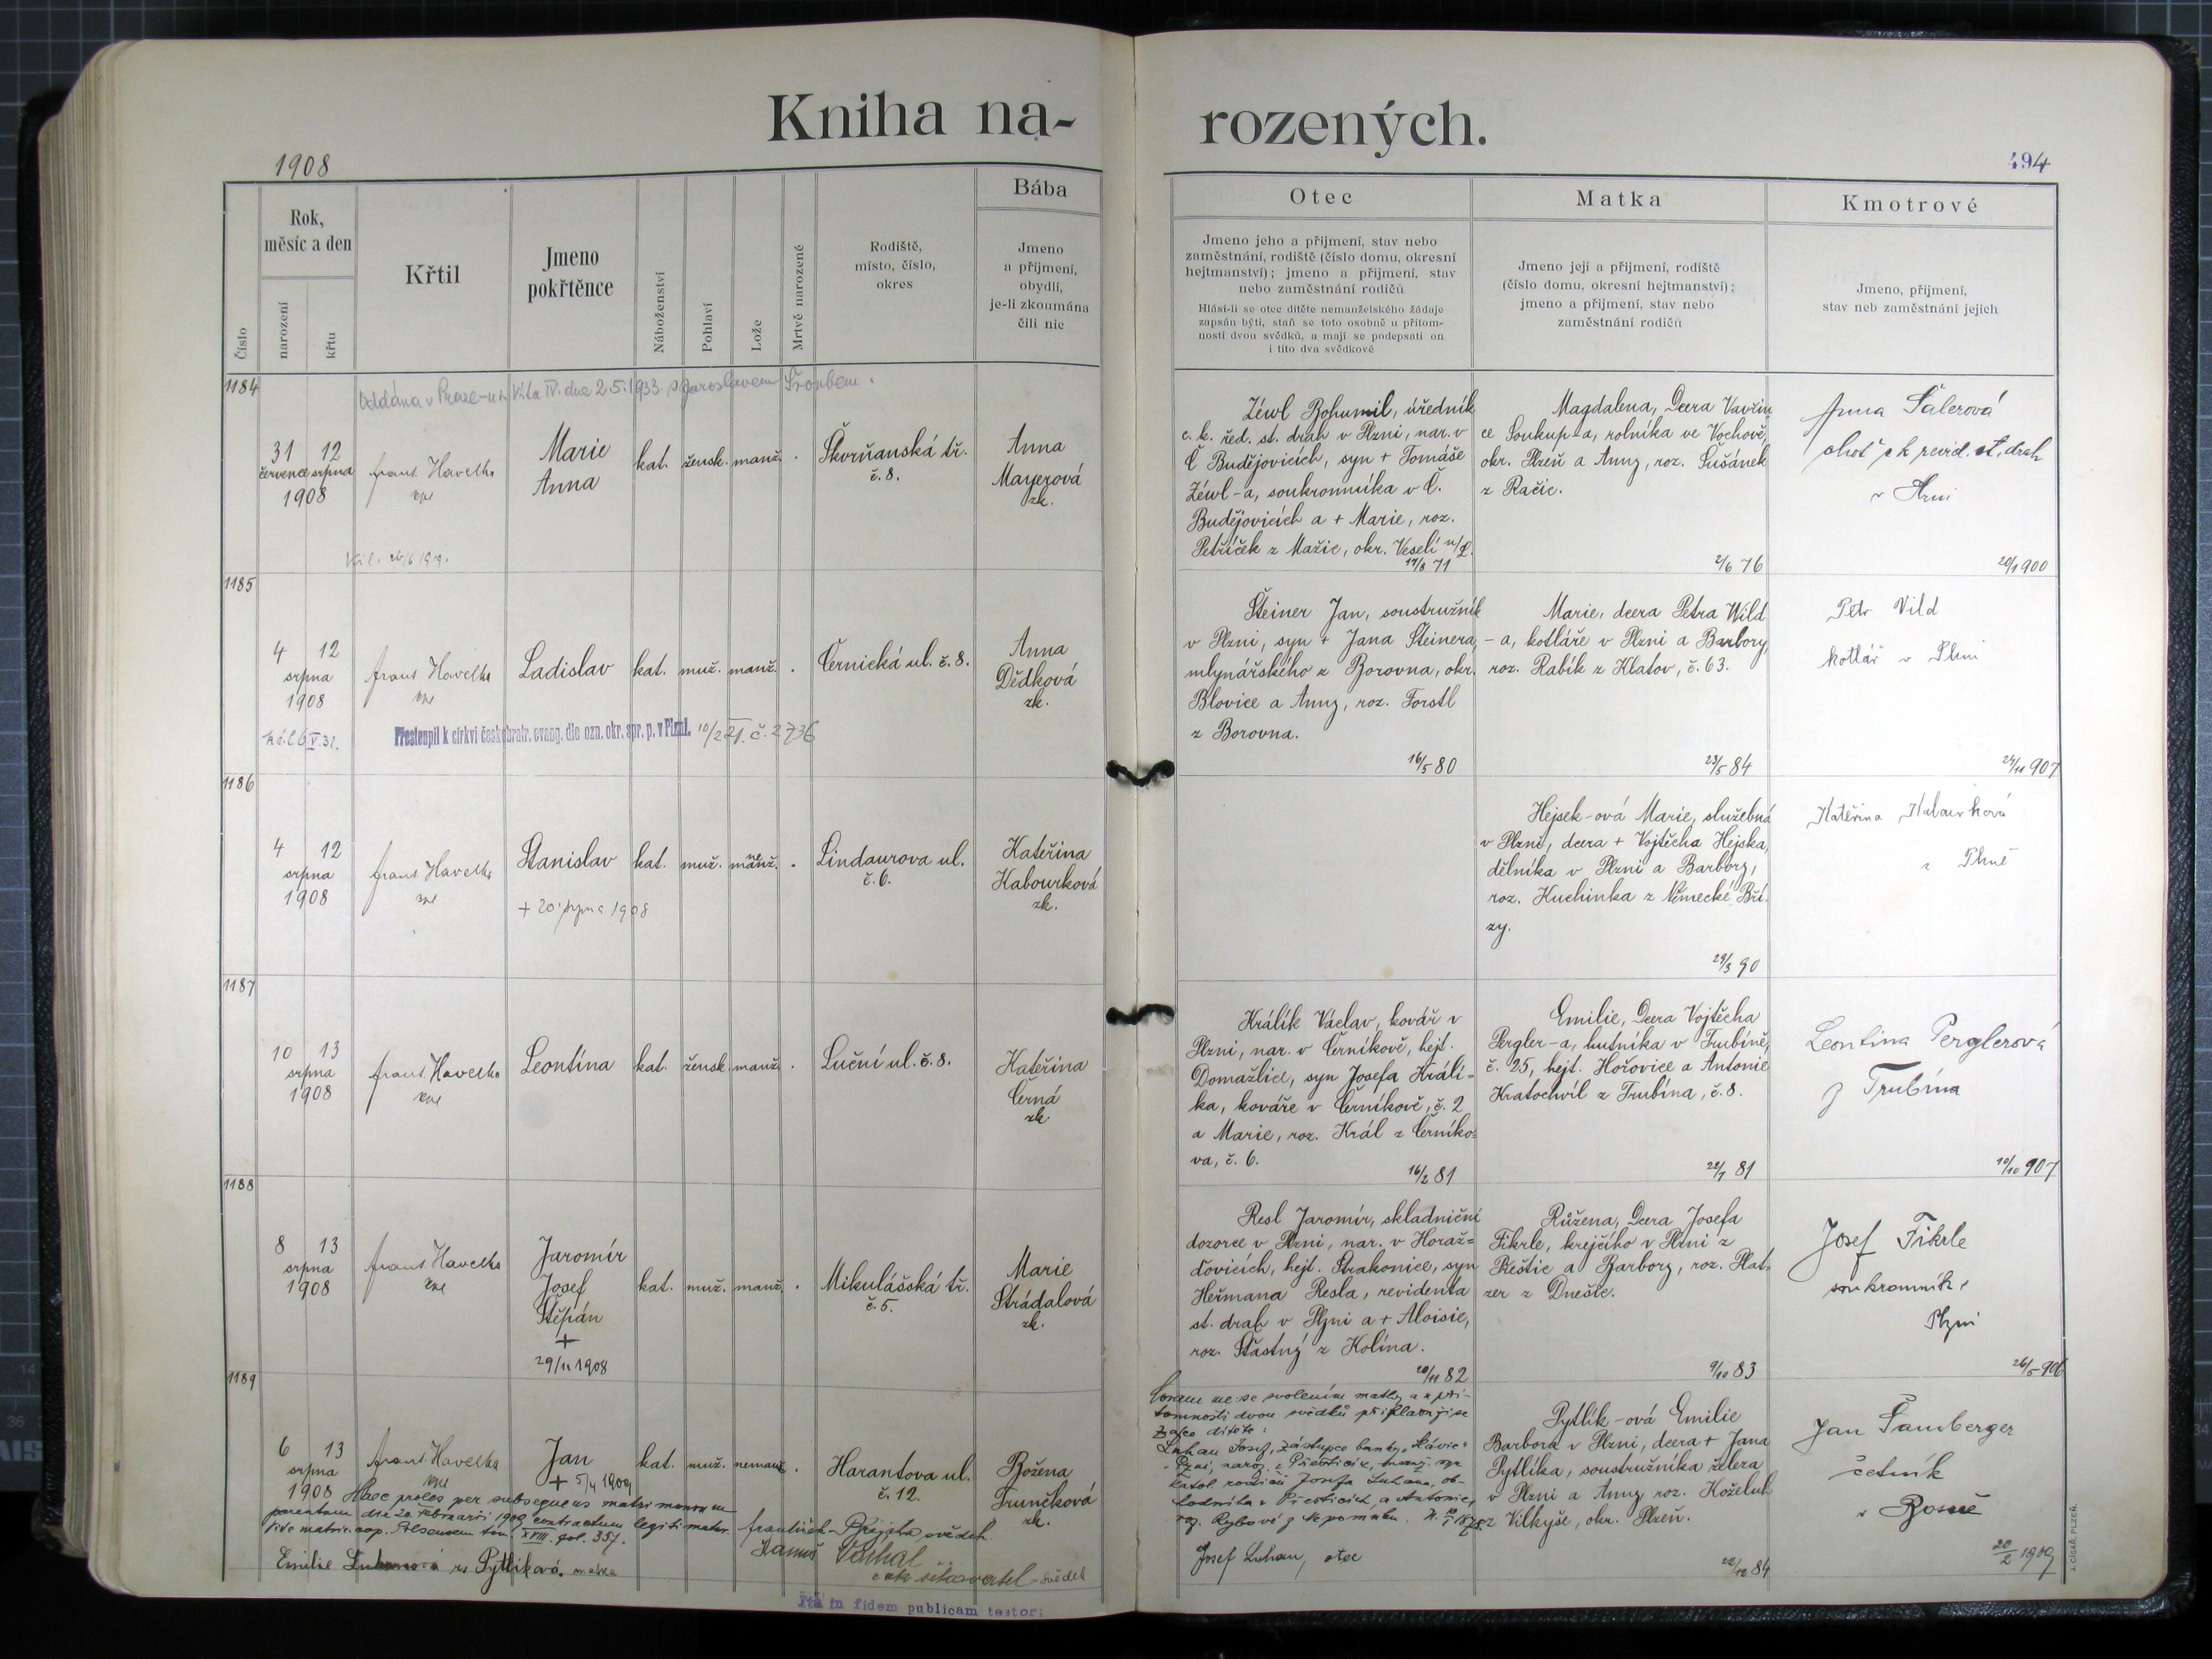 Kniha na-
rozených.
1908
494
Číslo
Rok,
měsíc a den
narození
křtu
Křtil
Jmeno
pokřtěnce
Náboženství
Pohlaví
Lože
Mrtvě narozené
Rodiště,
místo, číslo,
okres
Bába
Jmeno
a příjmení,
obydlí,
je-li zkoumána
čili nic
Otec
Jmeno jeho a přijmení, stav nebo
zaměstnání, rodiště (číslo domu, okresní
hejtmanství); jmeno a přijmení, stav
nebo zaměstnání rodičů
Hlásí-li se otec dítěte nemanželského žádaje
zapsán býti, staň se toto osobně u přítom-
nosti dvou svědků, a mají se podepsati on
i tito dva svědkové
Matka
Jmeno její a přijmení, rodiště
(číslo domu, okresní hejtmanství);
jmeno a přijmení, stav nebo
zaměstnání rodičů
Kmotrové
Jmeno, přijmení,
stav neb zaměstnání jejich
1184
Oddána v Praze-u sv. Víta IV. dne 2.5.1933 s Jaroslavem Šroubem.
31 12
července srpna
1908
frant. Havelka
Marie
Anna
kat.
žensk.
manž.
Škvrňanská tř.
č. 8.
Anna
Mayerová
zk.
Zéwl Bohumil, úředník
c. k. řed. st. drah v Plzni, nar. v
Č Budějovicích, syn + Tomáše
Zéwl-a, soukromníka v Č.
Budějovicích a + Marie, roz.
Petříček z Mažic, okr. Veselí n/L.
17/8 71
Magdalena, dcera Vavřin
ce Soukup-a, rolníka ve Vochově,
okr. Plzeň a Anny, roz. Sušánek
z Račic.
2/6 76
Anna Šalerová
choť c k revid. st. drah
v Plzni
20/1 900
1185
4 12
srpna
1908
frant Havelka
Ladislav
kat.
muž.
manž.
Černická ul. č. 8.
Anna
Dědková
zk.
Přestoupil k církvi českobratr. evang. dle ozn. okr. spr. p. v Plzni. 10/2 21. č. 2736
Šteiner Jan, soustružník
v Plzni, syn + Jana Šteinera,
mlynářského z Borovna, okr.
Blovice a Anny, roz. Forstl
z Borovna.
16/5 80
Marie, dcera Petra Wild
-a, kotláře v Plzni a Barbory,
roz. Rabík z Klatov, č. 63.
23/5 84
Petr Vild
kotlář v Plzni
24/11 907
1186
4 12
srpna
1908
frant Havelka
Stanislav
+ 20. srpna 1908
kat.
muž.
nemanž.
Lindaurova ul.
č. 6.
Kateřina
Kabourková
zk.
Hejsek-ová Marie, služebná
v Plzni, dcera + Vojtěcha Hejska,
dělníka v Plzni a Barbory,
roz. Kuchinka z Německé Bří.
zy.
29/3 90
Kateřina Kabourková
v Plzně
1187
10 13
srpna
1908
frant Havelka
Leontína
kat.
žensk.
manž.
Luční ul. č. 8.
Kateřina
Černá
zk
Králík Václav, kovář v
Plzni, nar. v Černíkově, hejt.
Domažlice, syn Josefa Králí-
ka, kováře v Černíkově, č. 2
a Marie, roz. Král z Černíko-
va, č. 6.
16/2 81
Emilie, dcera Vojtěcha
Pergler-a, hutníka v Trubíně,
č. 25, hejt. Hořovice a Antonie
Kratochvíl z Trubína, č. 8.
22/7 81
Leontina Perglerová
z Trubína
10/10 907
1188
8 13
srpna
1908
frant Havelka
Jaromír
Josef
Štěpán
+
29/11 1908
kat.
muž.
manž.
Mikulášská tř.
č. 5.
Marie
Strádalová
zk.
Resl Jaromír, skladniční
dozorce v Plzni, nar. v Horaž-
ďovicích, hejt. Strakonice, syn
Heřmana Resla, revidenta
st. drah v Plzni a + Aloisie,
roz. Šťastný z Kolína.
20/11 82
Růžena, dcera Josefa
Fikrle, krejčího v Plzni z
Přeštic a Barbory, roz. Plat-
zer z Dnešic.
9/10 83
Josef Fikrle
soukromník v
Plzni
26/5 906
1189
6 13
srpna
1908
frant. Havelka
Jan
+ 5/4 1909
kat.
muž.
nemanž.
Harantova ul.
č. 12.
Božena
Trunčková
zk.
Haec proles per subsequens matrimonium
parentum die 20. Februarii 1909 contractum legitimatur.
Vide matric. cop. Pilsensem tom. XVIII. fol. 357.
Emilie Luhanová roz Pytlíková. matka
svědek
Ita in fidem publicam testor:
Coram me se svolením matky a v pří-
tomnosti dvou svědků přihlašuje se
za otce dítěte:
Luhan Josef, zástupce banky „Slávie“
v Plzni, naroz. v Přešticích, manž. syn
katol. rodičů Josefa Luhana, ob-
chodníka v Přešticích, a Antonie,
roz. Rybové z Nepomuku.
Josef Luhan, otec
Pytlík-ová Emilie
Barbora v Plzni, dcera + Jana
Pytlíka, soustružníka želera
v Plzni a Anny roz. Koželuh
z Vilkyše, okr. Plzeň.
22/12 84
Jan Šamberger
četník
v Bosně
20/2 1909
J. CÍSAŘ, PLZEŇ.